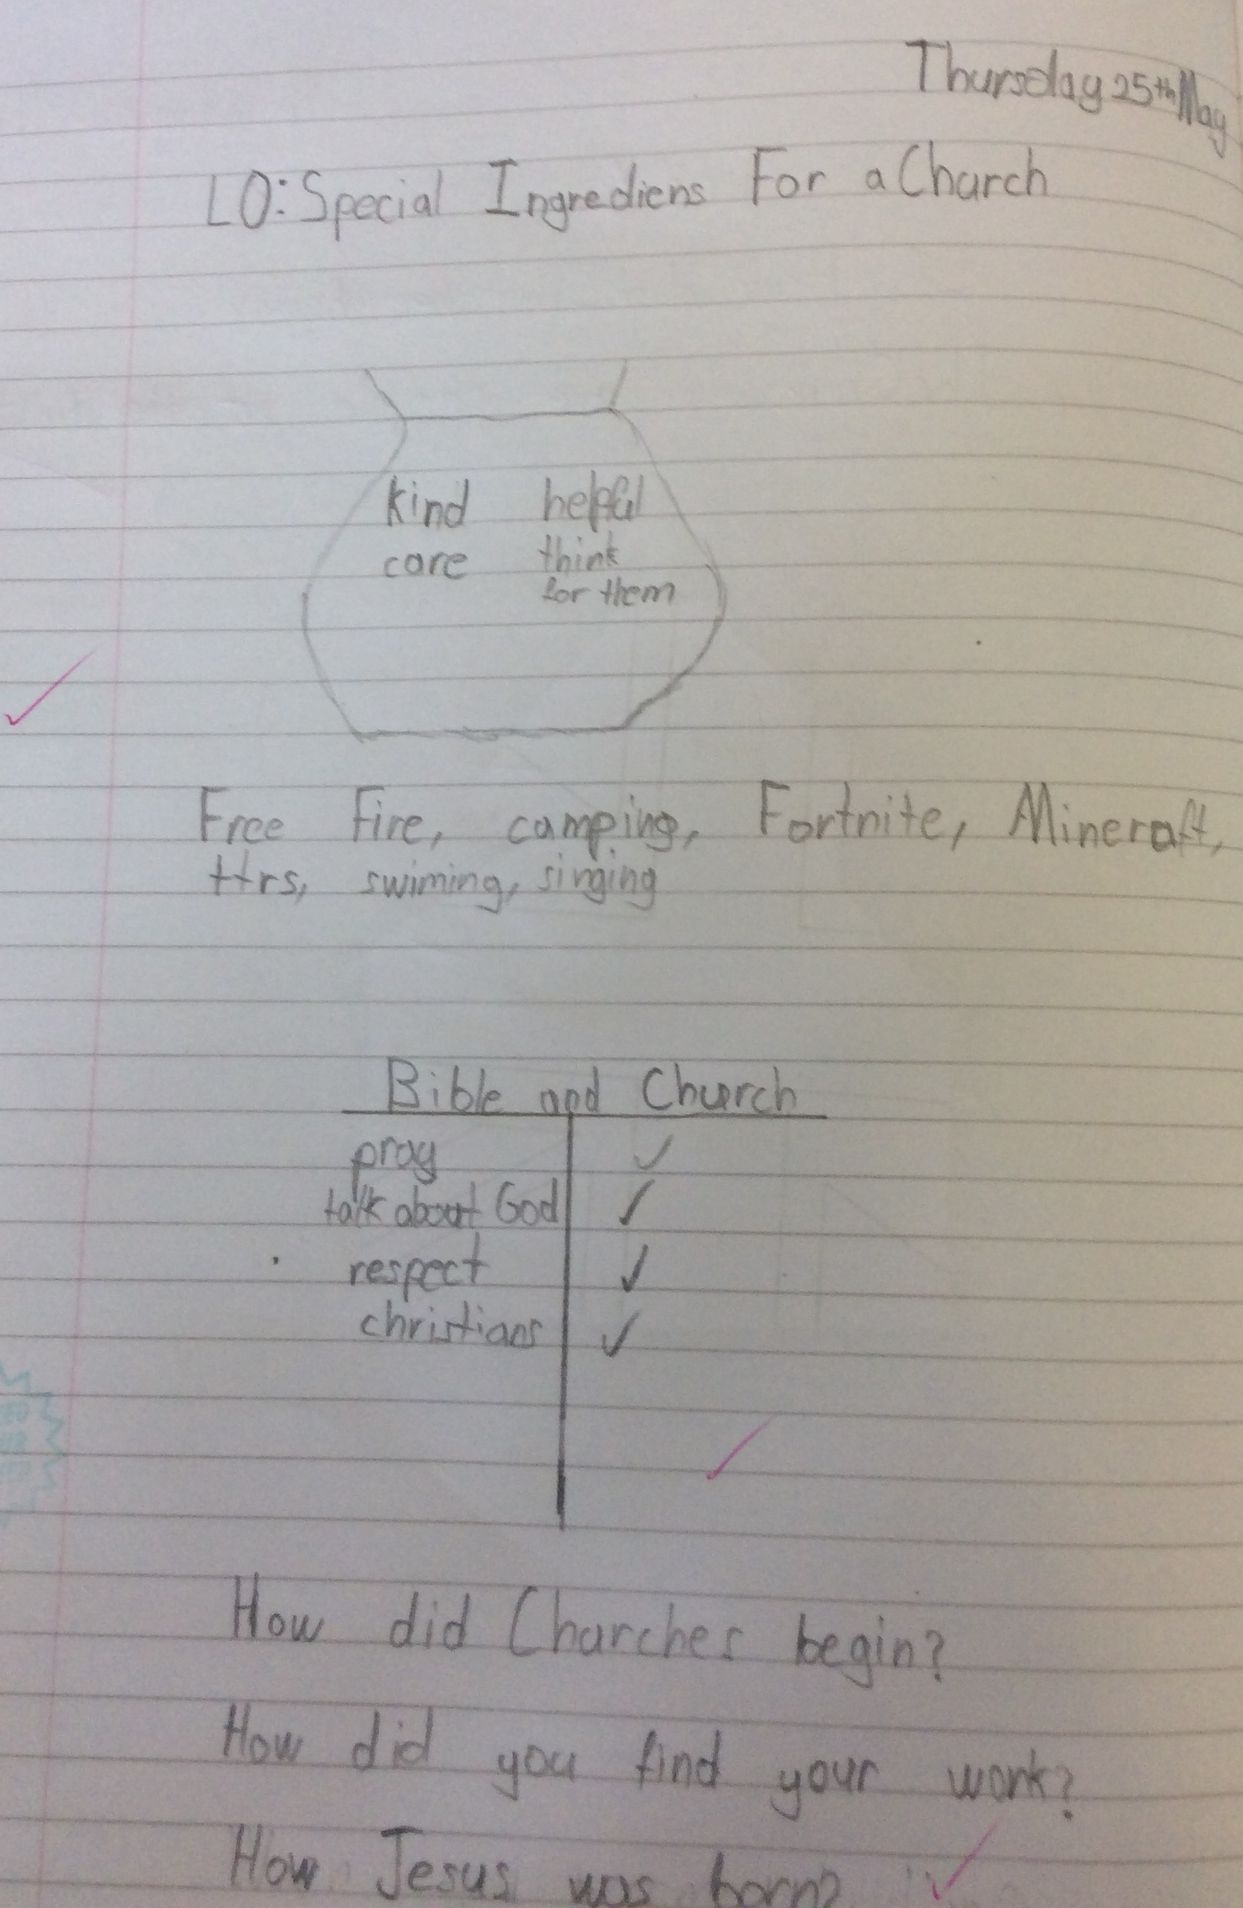 Thursday 25th May
LO: Special Ingrediens For a Church
kind helpful
care think
for them
Free Fire, camping, Fortnite, Minecraft,
ttrs, swiming, singing
Bible and Church
pray ✓
talk about God ✓
respect ✓
christians ✓
How did Churches begin?
How did you find your work?
How Jesus was born?